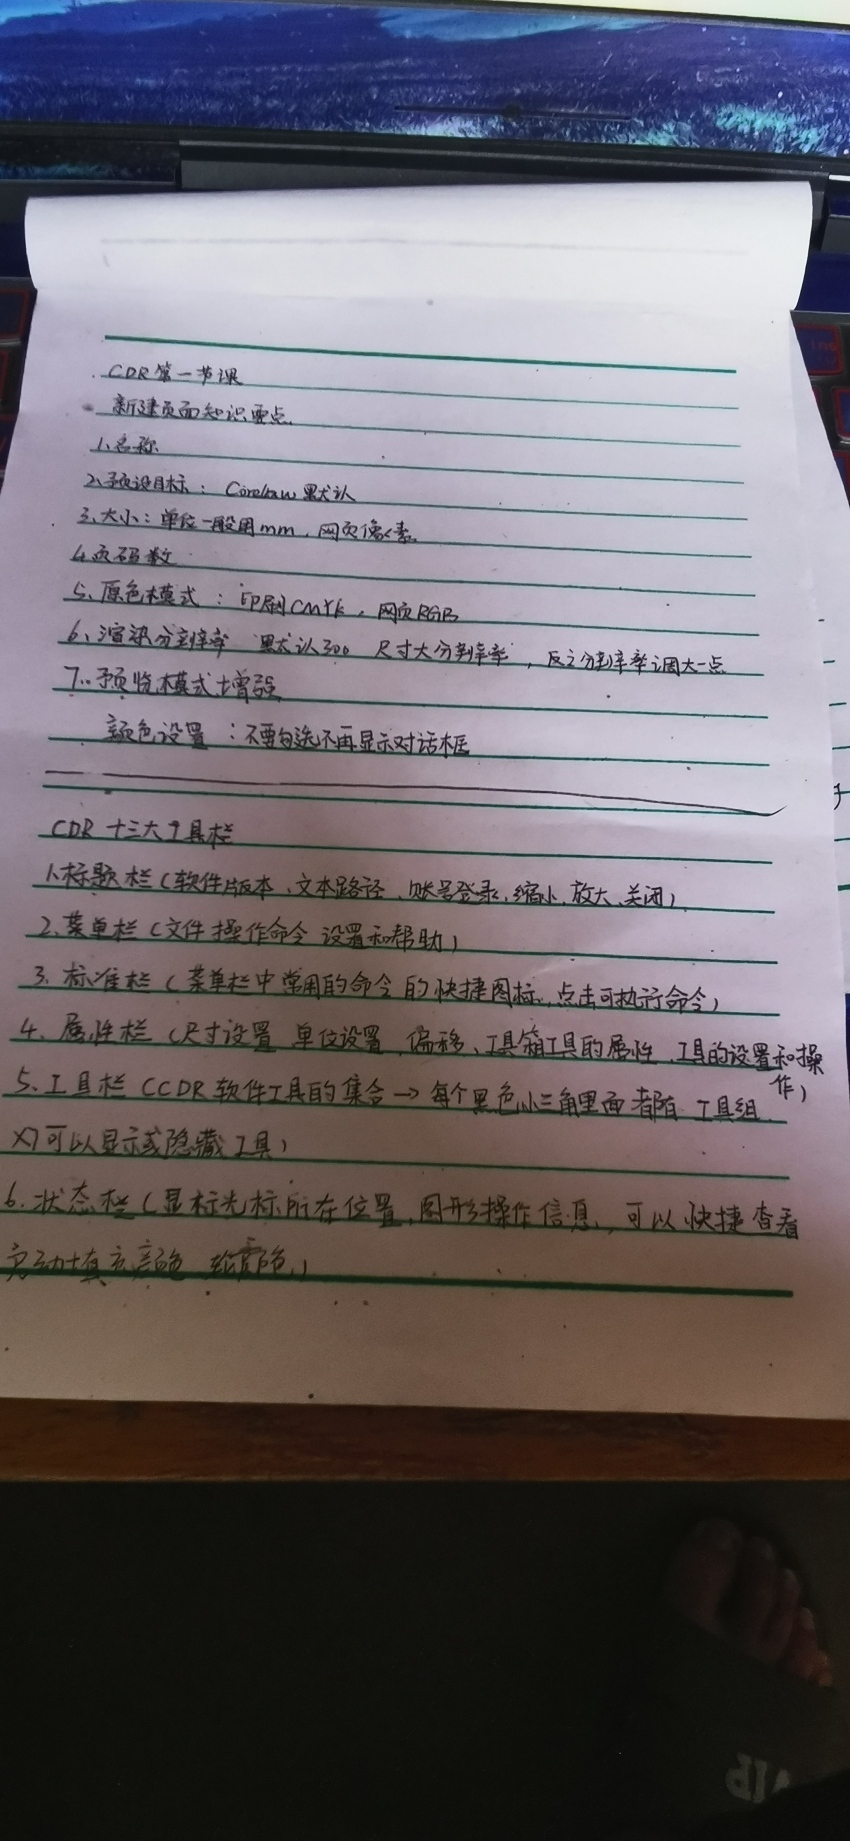 CDR第一节课
新建页面知识要点.
1、名称
2、预设目标：Coreldraw默认
3、大小：单位一般用mm，网页像素
4、页码数
5、原色模式：印刷CMYK，网页RGB
6、渲染分辨率 默认300 尺寸大分辨率，反之分辨率调大一点
7、预览模式增强
颜色设置：不要勾选不再显示对话框
CDR十三大工具栏
1、标题栏（软件版本、文本路径、账号登录，缩小，放大、关闭）
2、菜单栏（文件操作命令 设置和帮助）
3、标准栏（菜单栏中常用的命令的快捷图标，点击可执行命令）
4、属性栏（尺寸设置 单位设置，偏移、工具箱工具的属性，工具的设置和操
作）
5、工具栏（CDR软件工具的集合→每个黑色小三角里面都有工具组
可以显示或隐藏工具）
6、状态栏（显标光标所在位置，图形操作信息，可以快捷查看
填充颜色 轮廓色）